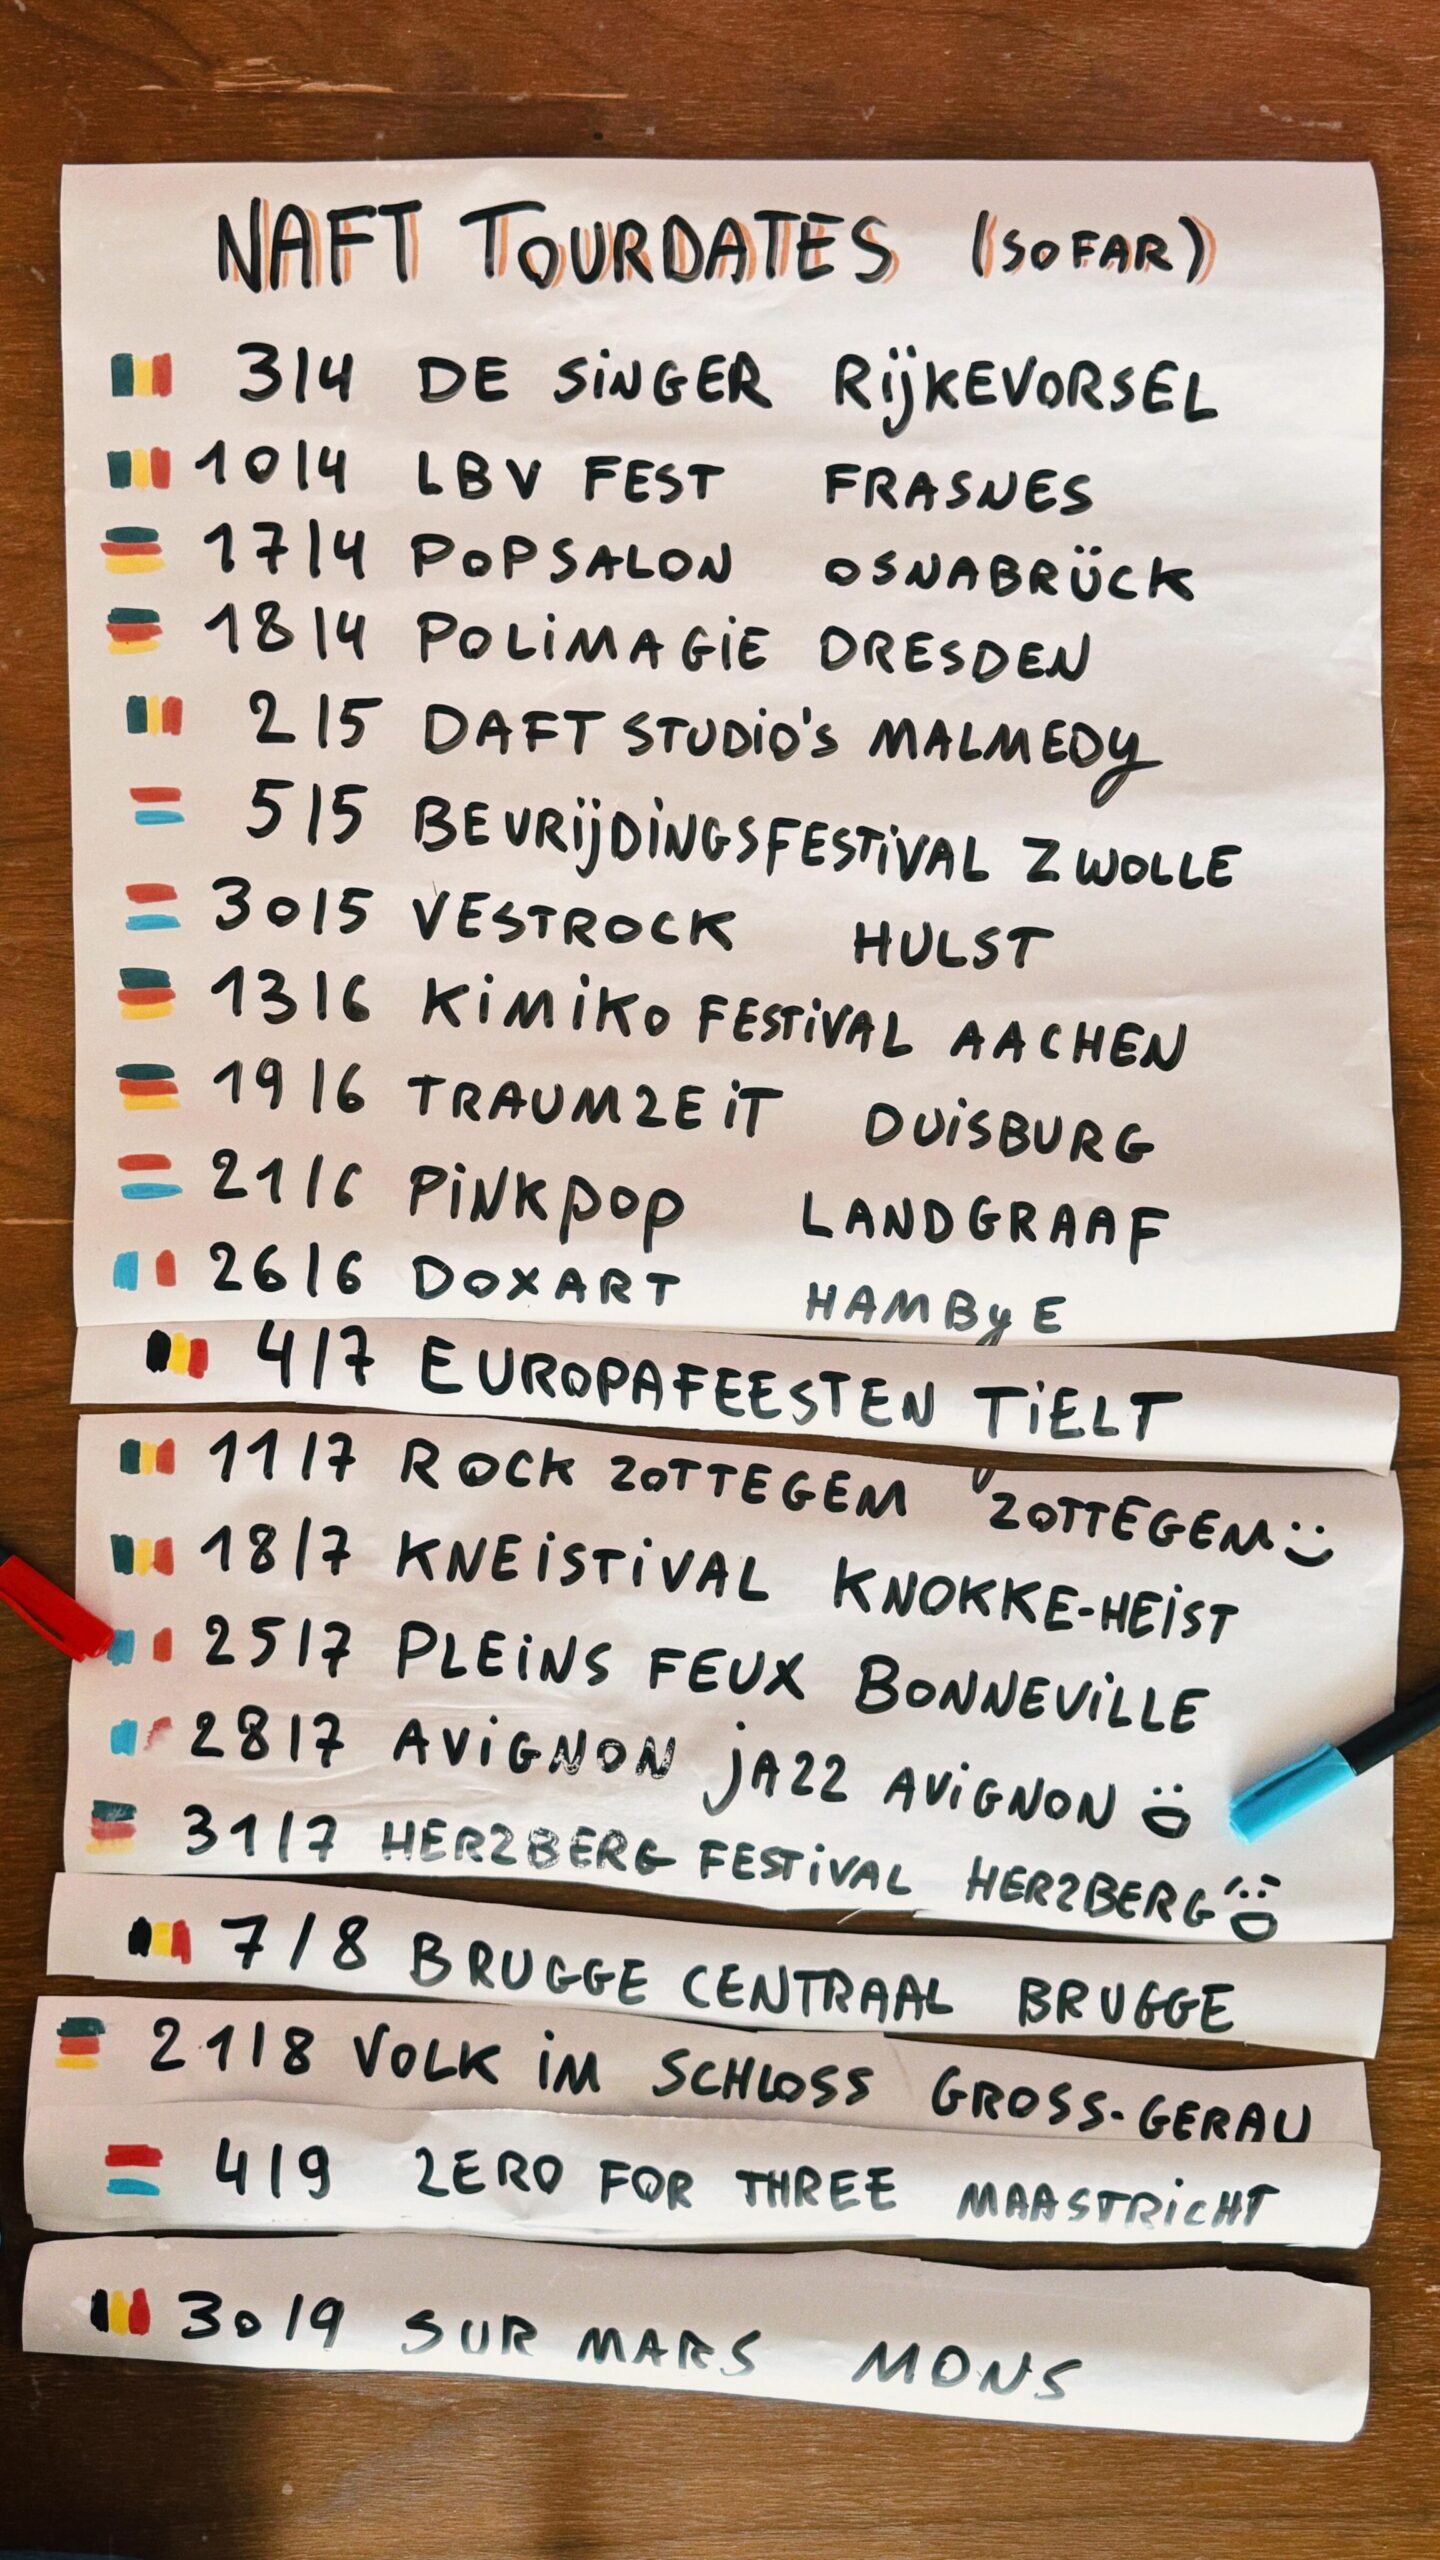 NAFT TOURDATES (SO FAR)
3/4 DE SINGER RIJKEVORSEL
10/4 LBV FEST FRASNES
17/4 POPSALON OSNABRÜCK
18/4 POLIMAGIE DRESDEN
2/5 DAFT STUDIO'S MALMEDY
5/5 BEVRIJDINGSFESTIVAL ZWOLLE
30/5 VESTROCK HULST
13/6 KIMIKO FESTIVAL AACHEN
19/6 TRAUMZEIT DUISBURG
21/6 PINKPOP LANDGRAAF
26/6 DOXART HAMBYE
4/7 EUROPAFEESTEN TIELT
11/7 ROCK ZOTTEGEM ZOTTEGEM
18/7 KNEISTIVAL KNOKKE-HEIST
25/7 PLEINS FEUX BONNEVILLE
28/7 AVIGNON JAZZ AVIGNON
31/7 HERZBERG FESTIVAL HERZBERG
7/8 BRUGGE CENTRAAL BRUGGE
21/8 VOLK IM SCHLOSS GROSS-GERAU
4/9 ZERO FOR THREE MAASTRICHT
30/9 SUR MARS MONS